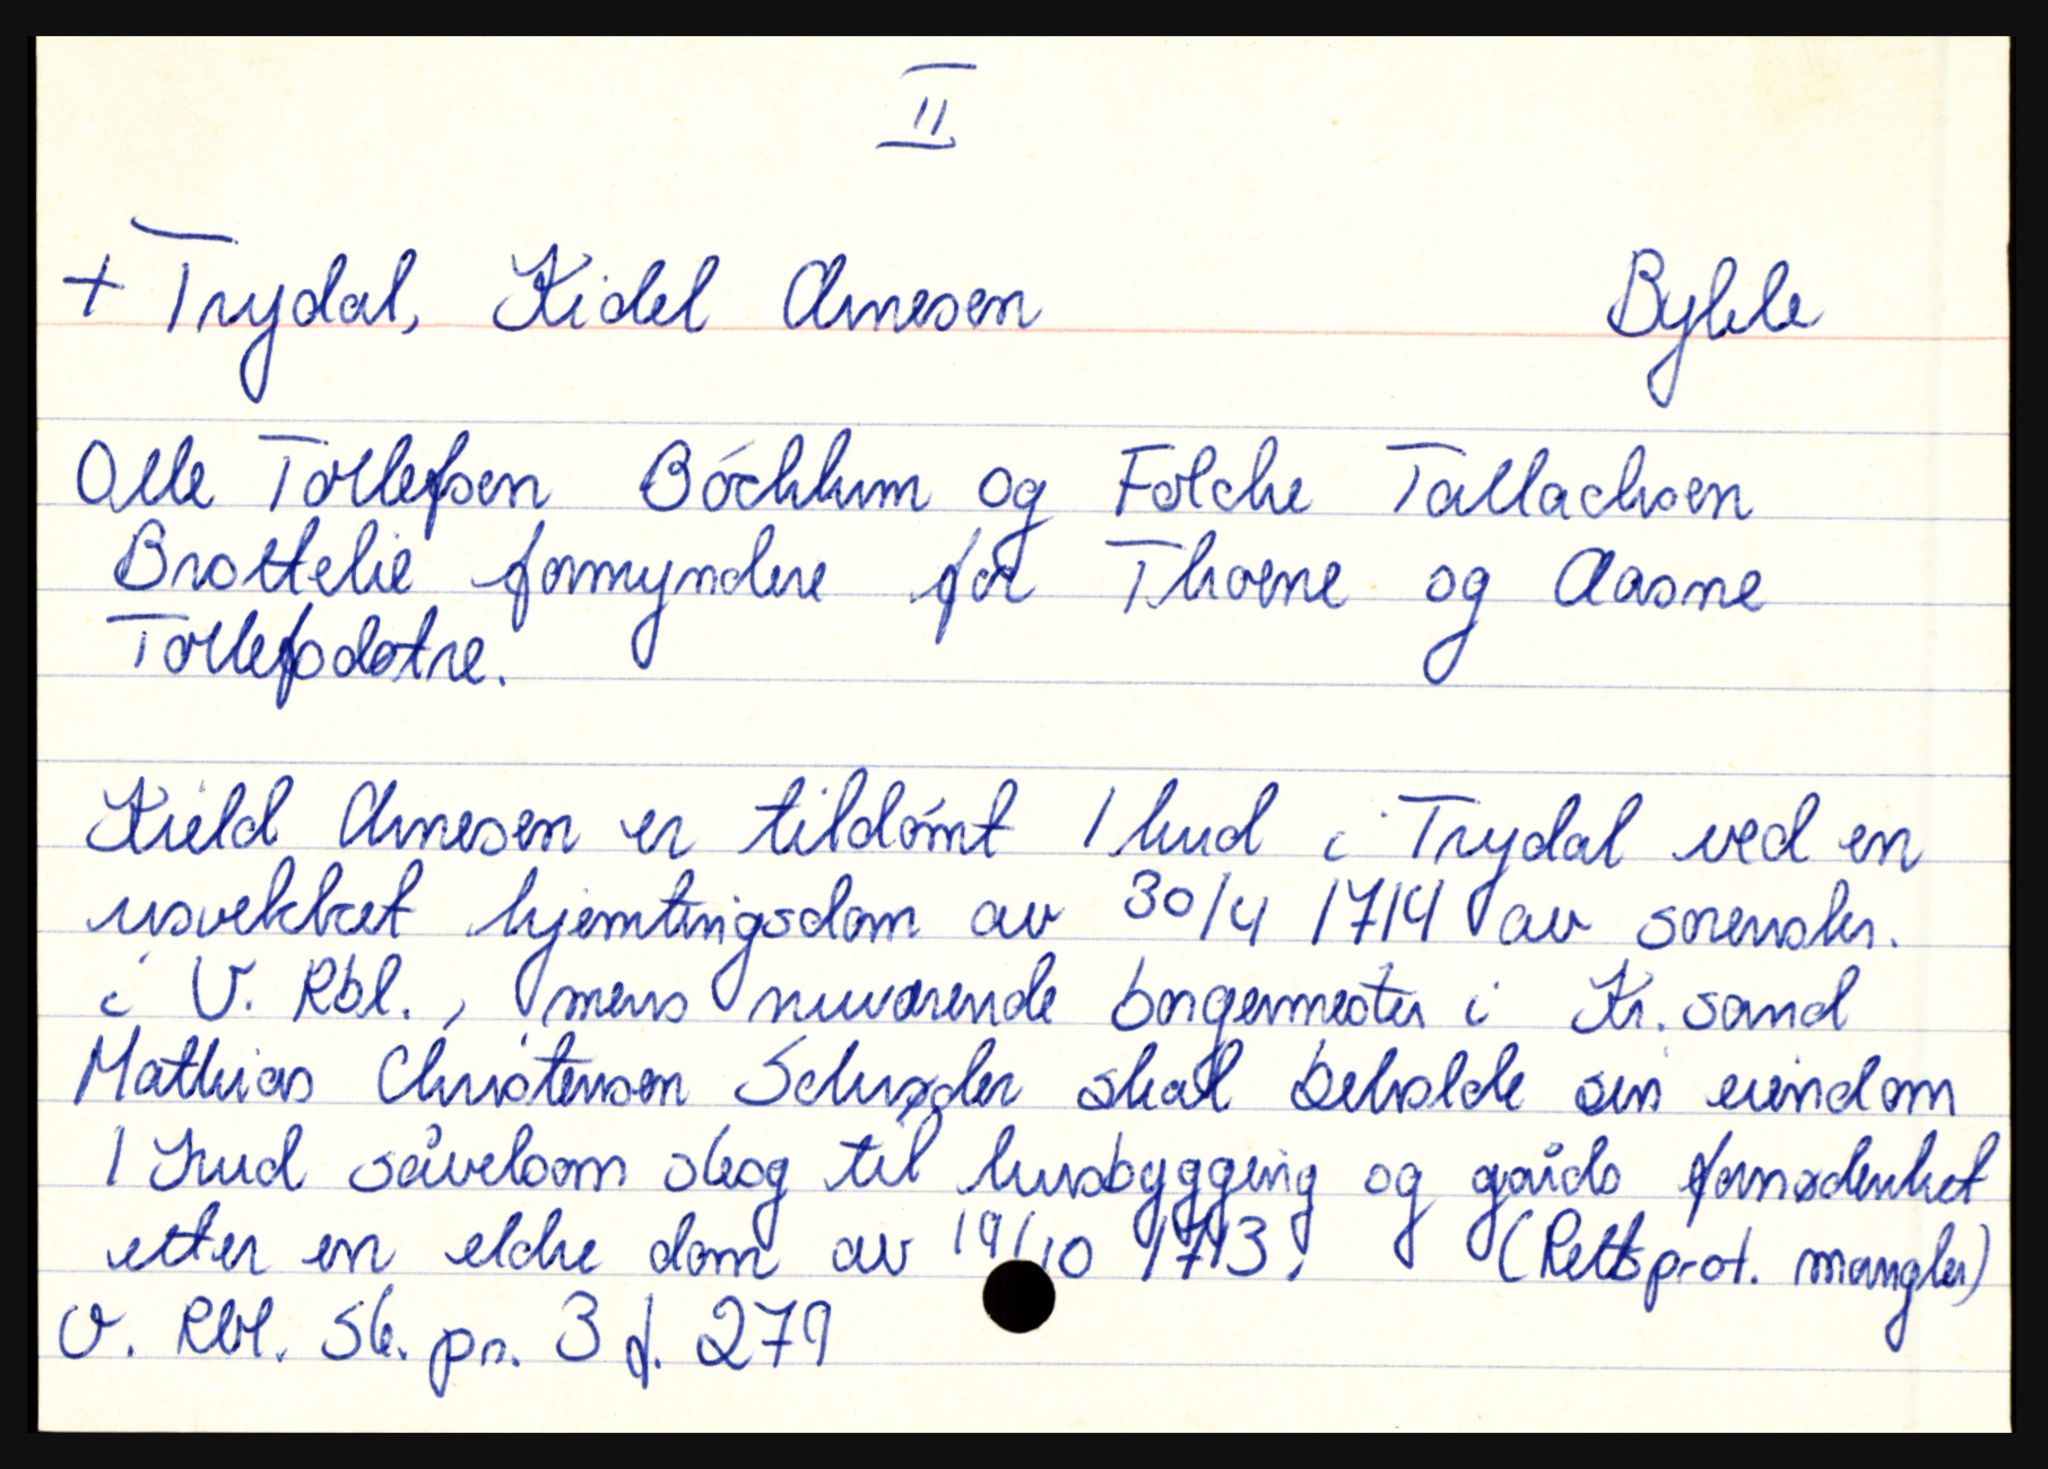 II
+ Trydal, Kidel Arnesen Bykle
Olle Tollefsen Bóckhum og Folche Tallachsen
Brottelie formyndere for Thorne og Aasne
Tollefsdøtre.
Kield Arnesen er tildómt 1 hud i Trydal ved en
usvekket hjemtingsdom av 30/4 1714 av sorenskr.
i V. Rbl., mens nuværende borgermester i Kr.sand
Mathias Christensen Schrøder skal beholde sin eiendom
1 hud såvelsom skog til husbygging og gårds fornødenhet
etter en eldre dom av 19/10 1713. (Rettsprot. mangler)
V. Rbl. Sk. pr. 3 f. 279